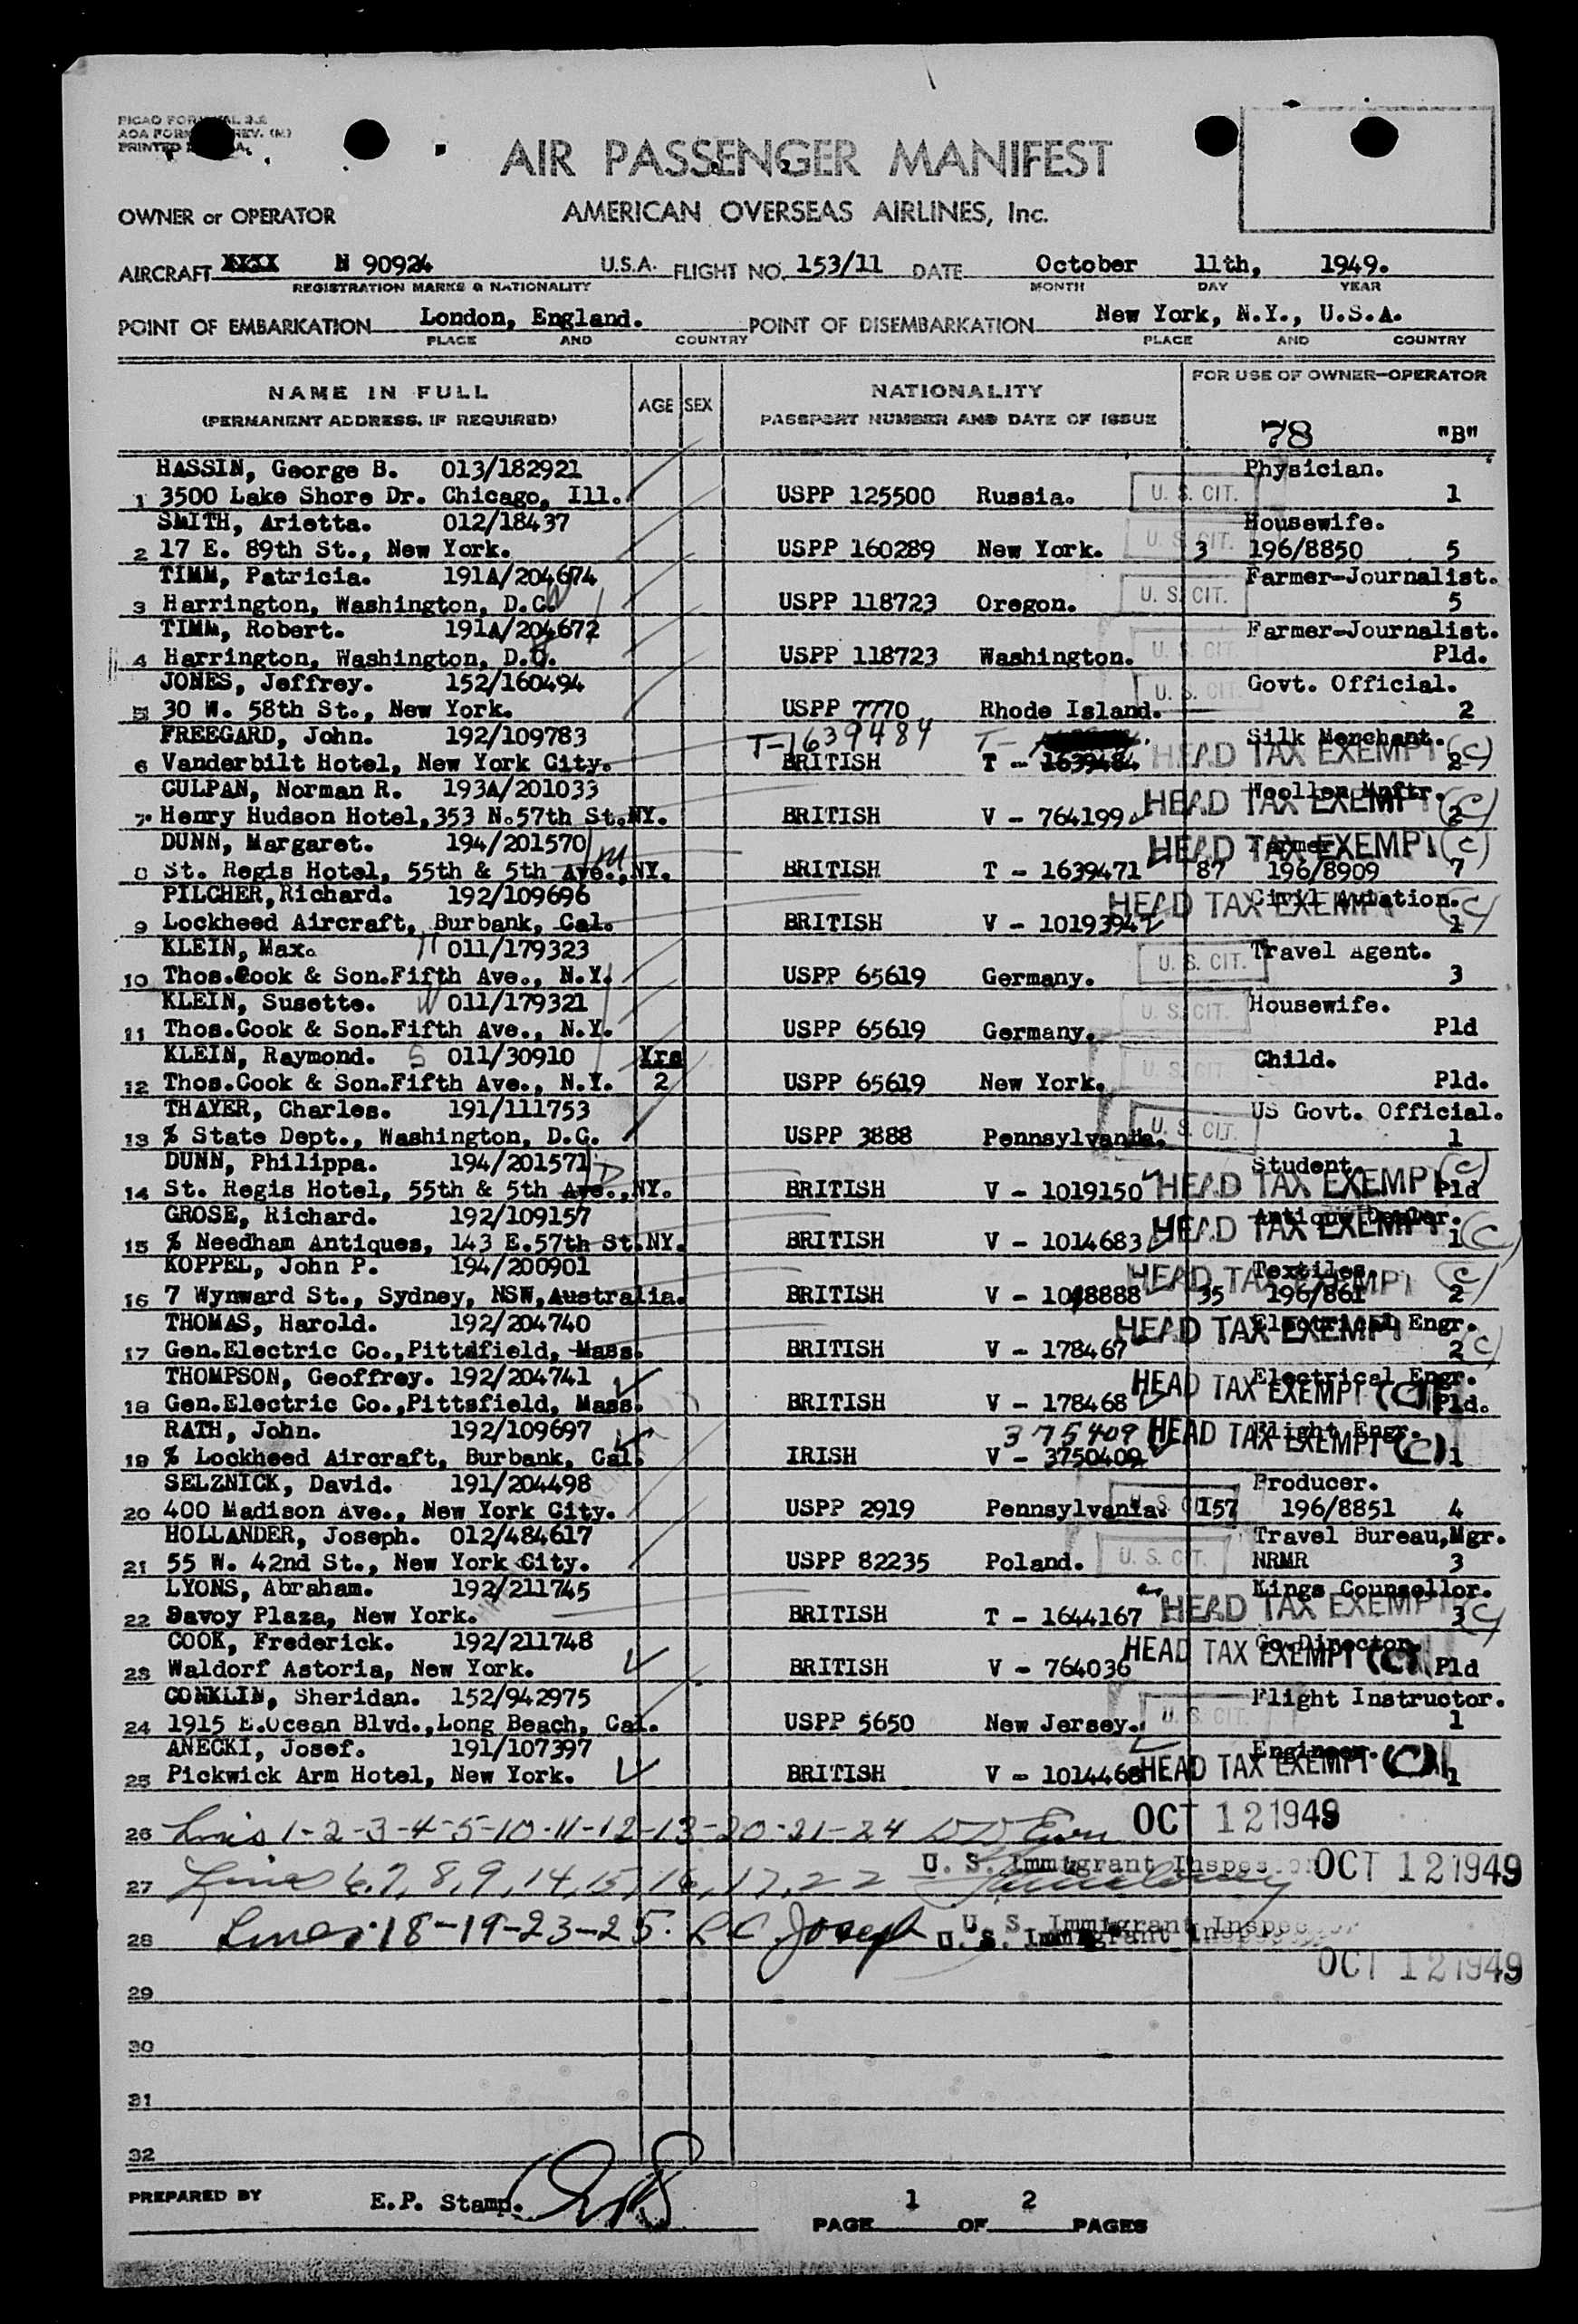 PICAO FOR
AOA FORM REV. (M)
PRINTED
AIR PASSENGER MANIFEST
OWNER or OPERATOR AMERICAN OVERSEAS AIRLINES, Inc.
AIRCRAFT XXXX N 90924 U.S.A. FLIGHT NO. 153/11 DATE October 11th, 1949.
REGISTRATION MARKS & NATIONALITY MONTH DAY YEAR
POINT OF EMBARKATION London, England. POINT OF DISEMBARKATION New York, N.Y., U.S.A.
PLACE AND COUNTRY PLACE AND COUNTRY
NAME IN FULL AGE SEX NATIONALITY FOR USE OF OWNER-OPERATOR
(PERMANENT ADDRESS, IF REQUIRED) PASSPORT NUMBER AND DATE OF ISSUE 78 "B"
HASSIN, George B. 013/182921 Physician.
1 3500 Lake Shore Dr. Chicago, Ill. USPP 125500 Russia. U. S. CIT. 1
SMITH, Arietta. 012/18437 Housewife.
2 17 E. 89th St., New York. USPP 160289 New York. U. S. CIT. 3 196/8850 5
TIMM, Patricia. 191A/204674 Farmer-Journalist.
3 Harrington, Washington, D.C. W USPP 118723 Oregon. U. S. CIT. 5
TIMM, Robert. 191A/204672 Farmer-Journalist.
4 Harrington, Washington, D.C. USPP 118723 Washington. U. S. CIT. Pld.
JONES, Jeffrey. 152/160494 Govt. Official.
5 30 W. 58th St., New York. USPP 7770 Rhode Island. U. S. CIT. 2
FREEGARD, John. 192/109783 T-1639484 T- Silk Merchant.
6 Vanderbilt Hotel, New York City. BRITISH T - 1639484 HEAD TAX EXEMPT (C) 2
CULPAN, Norman R. 193A/201033 Woollen Mnftr.
7 Henry Hudson Hotel,353 N.57th St.NY. BRITISH V - 764199 HEAD TAX EXEMPT (C) 2
DUNN, Margaret. 194/201570 M HEAD TAX EXEMPT (C) Farmer
8 St. Regis Hotel, 55th & 5th Ave.,NY. BRITISH T - 1639471 87 196/8909 7
PILCHER,Richard. 192/109696 HEAD TAX EXEMPT (C) Civil Aviation.
9 Lockheed Aircraft, Burbank, Cal. BRITISH V - 1019394 1
KLEIN, Max. H 011/179323 Travel Agent.
10 Thos.Cook & Son.Fifth Ave., N.Y. USPP 65619 Germany. U. S. CIT. 3
KLEIN, Susette. W 011/179321 Housewife.
11 Thos.Cook & Son.Fifth Ave., N.Y. USPP 65619 Germany. U. S. CIT. Pld
KLEIN, Raymond. S 011/30910 Yrs Child.
12 Thos.Cook & Son.Fifth Ave., N.Y. 2 USPP 65619 New York. U. S. CIT. Pld.
THAYER, Charles. 191/111753 US Govt. Official.
13 % State Dept., Washington, D.C. USPP 3888 Pennsylvania. U. S. CIT. 1
DUNN, Philippa. 194/201571 D Student.
14 St. Regis Hotel, 55th & 5th Ave.,NY. BRITISH V - 1019150 HEAD TAX EXEMPT (C) Pld
GROSE, Richard. 192/109157 Antique Dealer.
15 % Needham Antiques, 143 E.57th St.NY. BRITISH V - 1014683 HEAD TAX EXEMPT (C) 1
KOPPEL, John P. 194/200901 HEAD TAX EXEMPT (C) Textiles.
16 7 Wynward St., Sydney, NSW,Australia. BRITISH V - 1048888 35 196/861 2
THOMAS, Harold. 192/204740 HEAD TAX EXEMPT Electrical Engr.
17 Gen.Electric Co.,Pittsfield, Mass. BRITISH V - 178467 2 (C)
THOMPSON, Geoffrey. 192/204741 HEAD TAX EXEMPT (C) Electrical Engr.
18 Gen.Electric Co.,Pittsfield, Mass. BRITISH V - 178468 Pld.
RATH, John. 192/109697 375409 HEAD TAX EXEMPT (C) Flight Engr.
19 % Lockheed Aircraft, Burbank, Cal. IRISH V - 3750409 1
SELZNICK, David. 191/204498 Producer.
20 400 Madison Ave., New York City. USPP 2919 Pennsylvania. U. S. CIT. 157 196/8851 4
HOLLANDER, Joseph. 012/484617 Travel Bureau,Mgr.
21 55 W. 42nd St., New York City. USPP 82235 Poland. U. S. CIT. NRMR 3
LYONS, Abraham. 192/211745 Kings Counsellor.
22 Savoy Plaza, New York. BRITISH T - 1644167 HEAD TAX EXEMPT (C) 3
COOK, Frederick. 192/211748 Co-Director.
23 Waldorf Astoria, New York. BRITISH V - 764036 HEAD TAX EXEMPT (C) Pld
CONKLIN, Sheridan. 152/942975 Flight Instructor.
24 1915 E.Ocean Blvd.,Long Beach, Cal. USPP 5650 New Jersey. U. S. CIT. 1
ANECKI, Josef. 191/107397 Engineer.
25 Pickwick Arm Hotel, New York. BRITISH V - 1014468 HEAD TAX EXEMPT (C) 1
26 Lines 1-2-3-4-5-10-11-12-13-20-21-24 OCT 12 1949
27 Lines 6,7,8,9,14,15,16,17,22 U. S. Immigrant Inspector OCT 12 1949
28 Lines 18-19-23-25. R C Joseph U. S. Immigrant Inspector
U. S. Immigrant Inspector
OCT 12 1949
29
30
31
32
PREPARED BY E.P. Stamp. PAGE 1 OF 2 PAGES